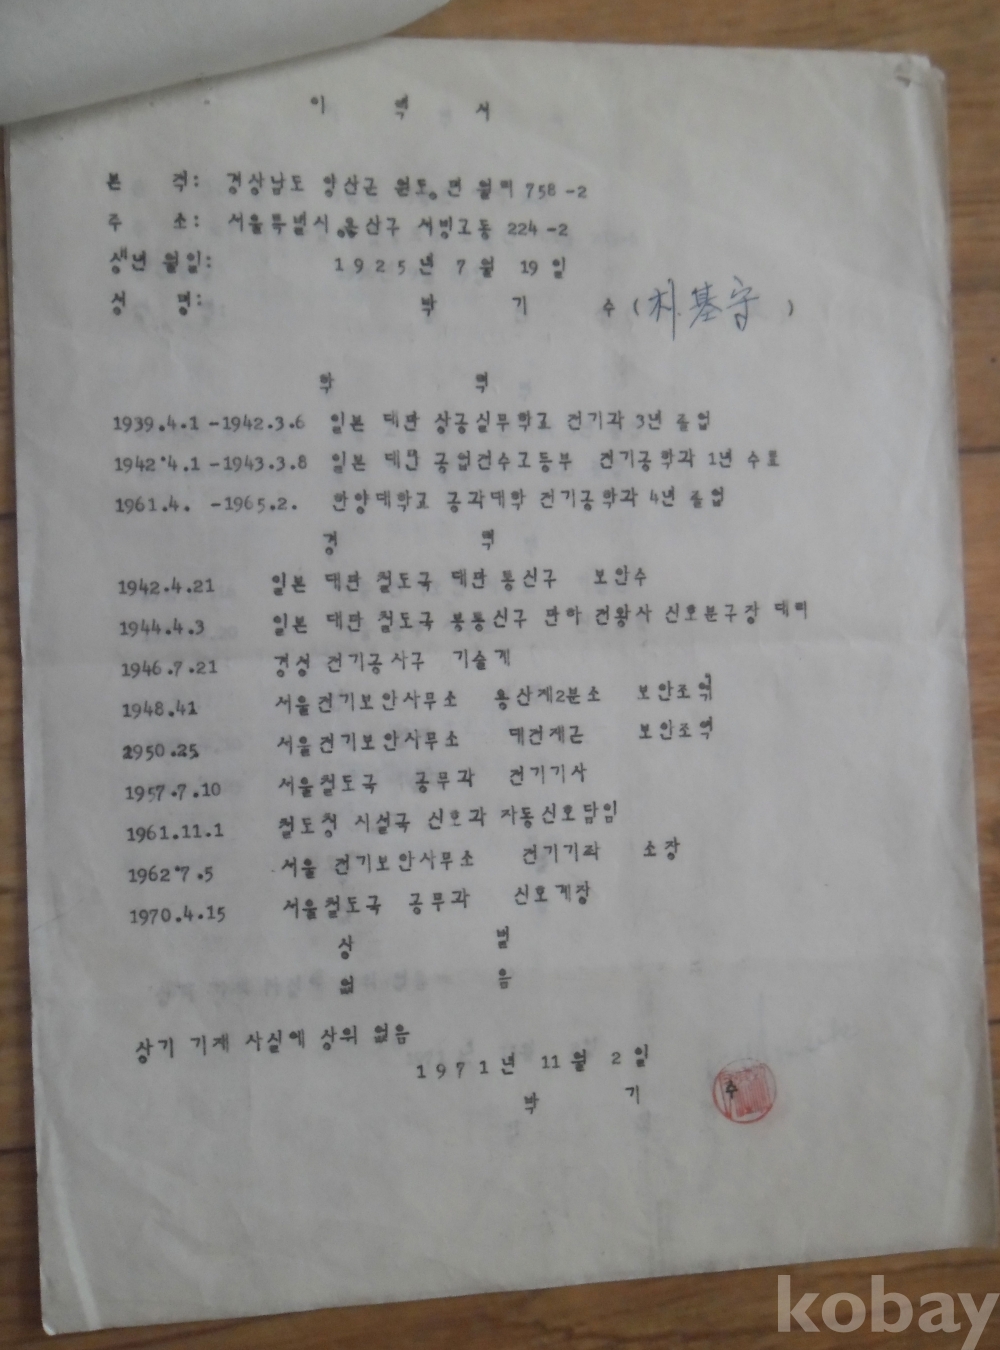 이 력 서
본 적: 경상남도 양산군 원동면 원리 758-2
주 소: 서울특별시 용산구 서빙고동 224-2
생년월일: 1925년 7월 19일
성 명: 박 기 수 (朴基守)
학 력
1939.4.1-1942.3.6 일본 대만 상공실무학교 전기과 3년 졸업
1942.4.1-1943.3.8 일본 대만 공업전수고등부 전기공학과 1년 수료
1961.4. -1965.2. 한양대학교 공과대학 전기공학과 4년 졸업
경 력
1942.4.21 일본 대만 철도국 대만 통신구 보안수
1944.4.3 일본 대만 철도국 통신구 신호분구장 대리
1946.7.21 경성 전기공사구 기술계
1948.41 서울전기보안사무소 용산제2분소 보안조역
1950.25 서울전기보안사무소 대전제근 보안조역
1957.7.10 서울철도국 공무과 전기기사
1961.11.1 철도청 시설국 신호과 자동신호담임
1962.7.5 서울 전기보안사무소 전기기좌 소장
1970.4.15 서울철도국 공무과 신호계장
상 벌
없 음
상기 기재 사실에 상위 없음
1971년 11월 2일
박 기 수
kobay